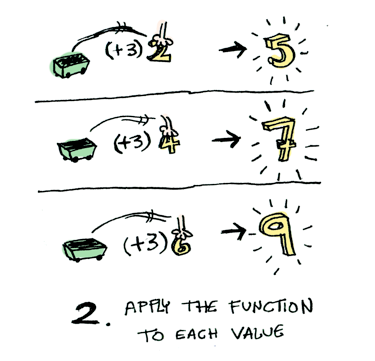 (+3) 2 → 5
(+3) 4 → 7
(+3) 6 → 9
2. APPLY THE FUNCTION
TO EACH VALUE